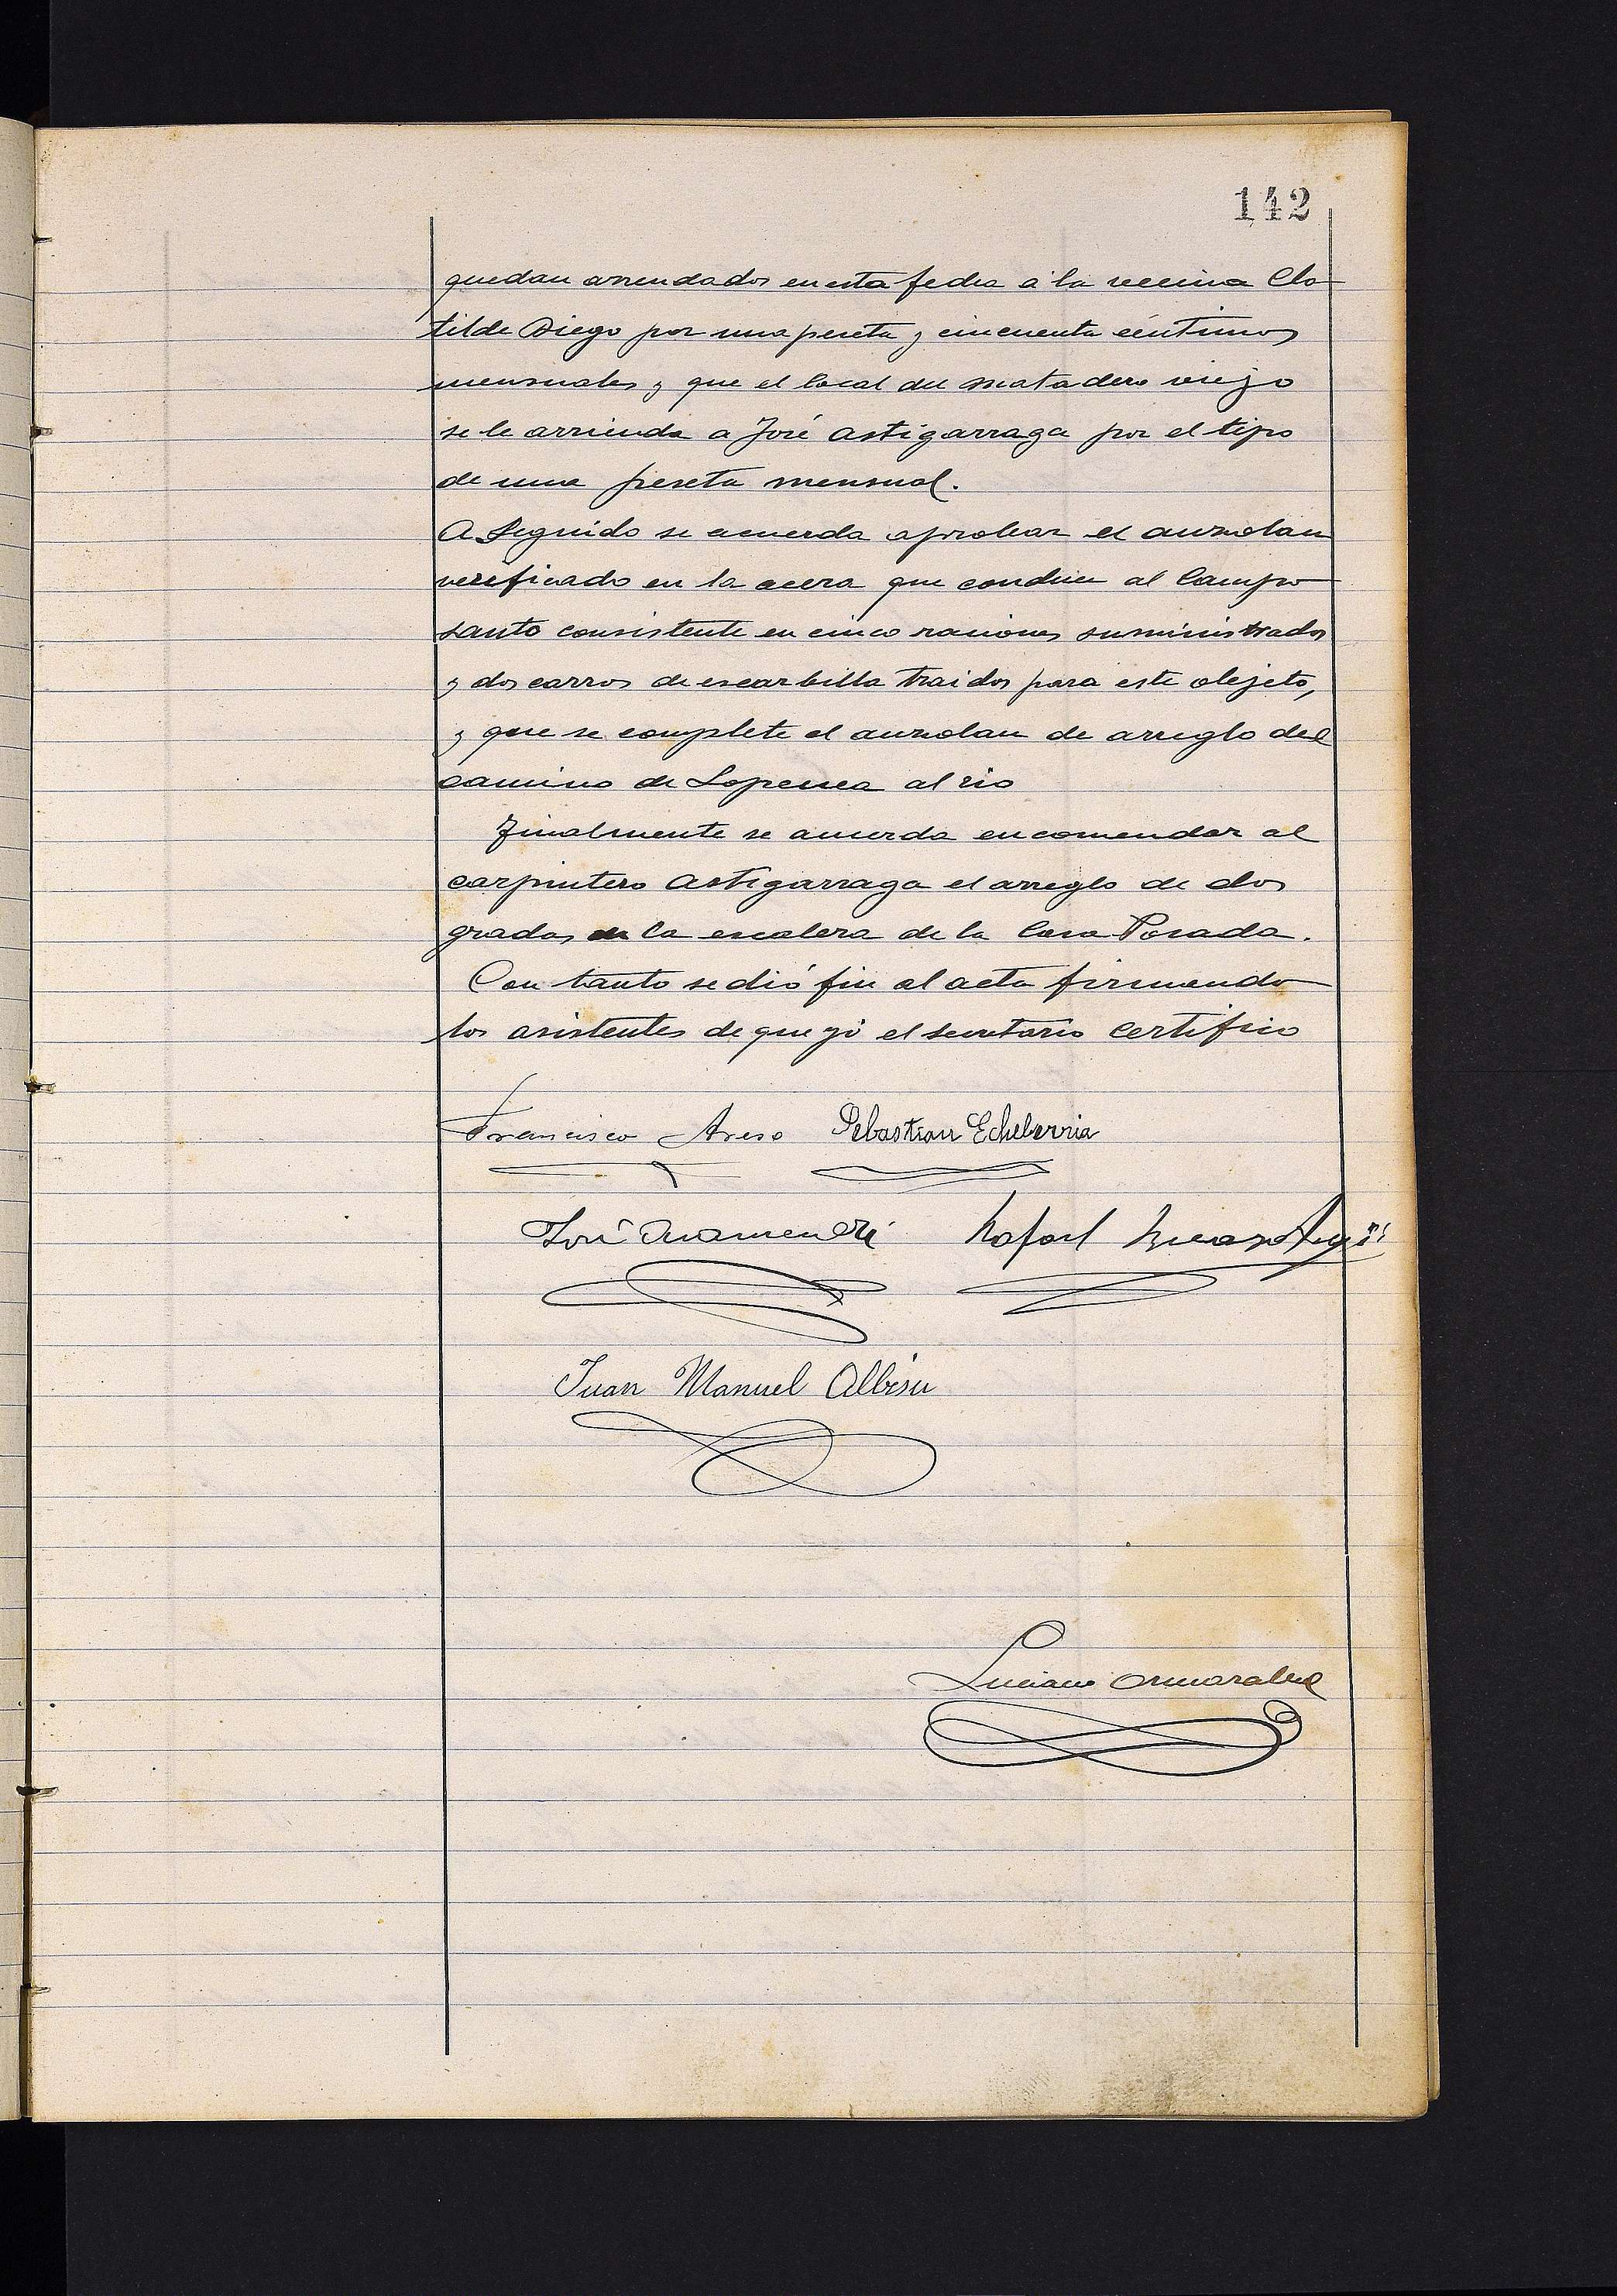 142
quedan arrendados en esta fecha á la vecina Clo
tilde Diego por una peseta y cincuenta céntimos
mensuales y que el local del matadero viejo
se le arrienda a José Astigarraga por el tipo
de una peseta mensual.
A seguido se acuerda aprobar el auzolan
verificado en la acera que conduce al Campo
santo consistente en cinco raciones suministrados
y dos carros de escarbilla traidos para este objeto,
y que se complete el auzolan de arreglo del
camino de Lopenea al rio
Finalmente se acuerda encomendar al
carpintero Astigarraga el arreglo de dos
gradas de la escalera de la Casa Posada.
Con tanto se dió fin al acta firmando
los asistentes de que yó el secretario certifico
Francisco Areso Sebastian Echeberria
José Rafael
Juan Manuel Albisu
Luciano